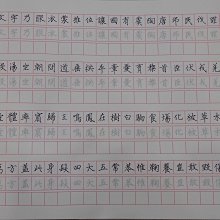 文字乃服衣裳推位讓國有虞陶唐弔民伐罪
殷湯坐朝問道垂拱平章愛育黎首臣伏戎羌
壹體率賓歸王鳴鳳在樹白駒食場化被草木
萬方蓋此身髮四大五常恭惟鞠養豈敢毀傷